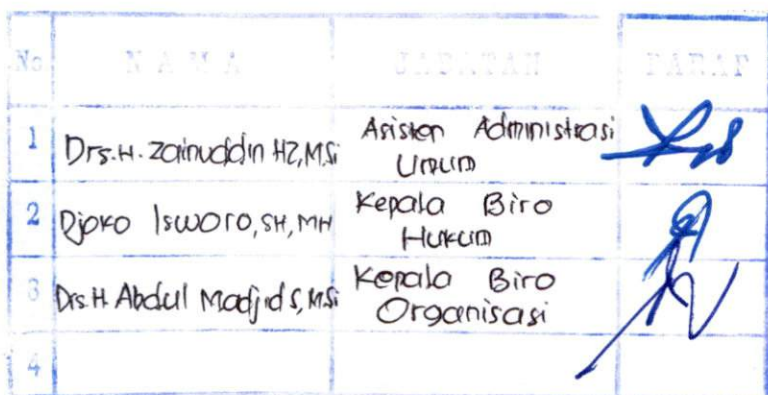 No NAMA JABATAN PARAF
1 Drs.H. Zainuddin HZ, M.Si Asisten Administrasi
Umum
2 Djoko Isworo, SH, MH Kepala Biro
Hukum
3 Drs.H Abdul Madjid S, M.Si Kepala Biro
Organisasi
4